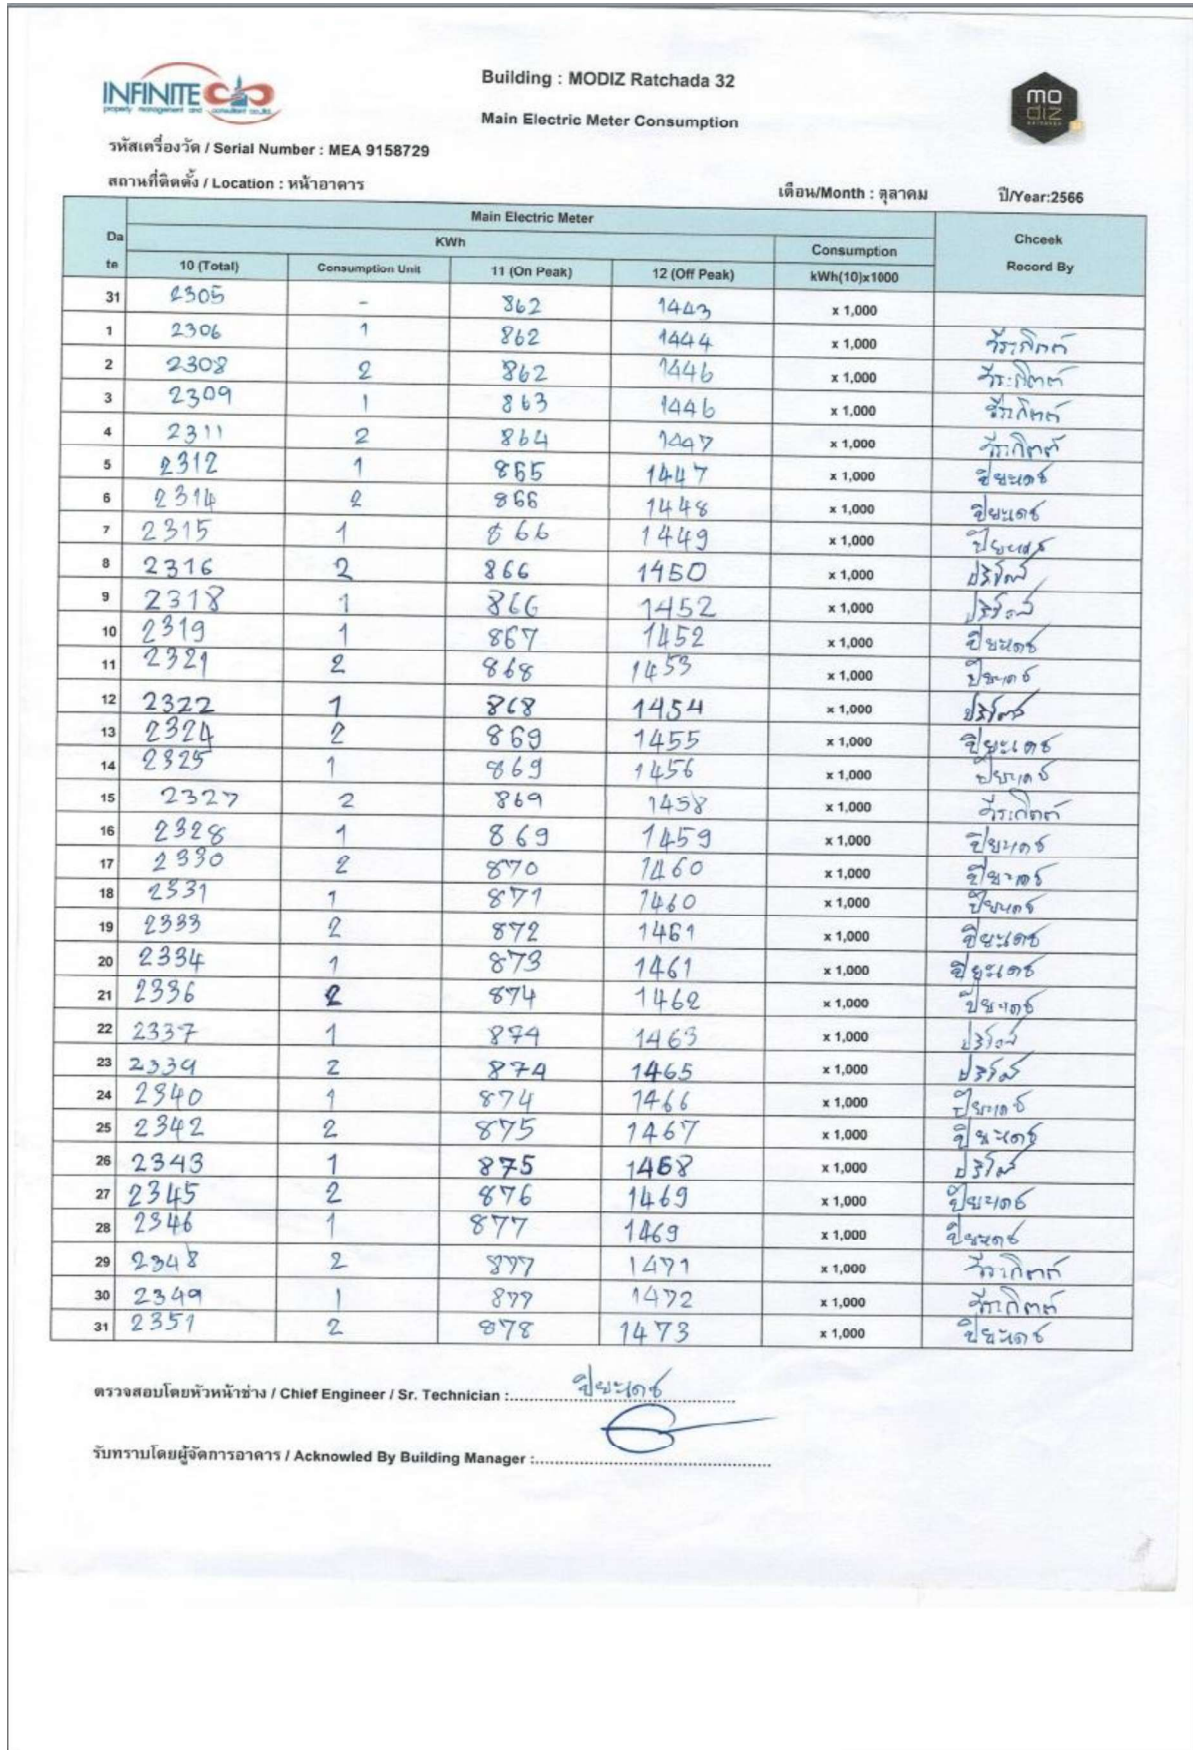 INFINITE
property management and consultant co.,ltd.
Building : MODIZ Ratchada 32
Main Electric Meter Consumption
mo
diz
รหัสเครื่องวัด / Serial Number : MEA 9158729
สถานที่ติดตั้ง / Location : หน้าอาคาร
เดือน/Month : ตุลาคม ปี/Year:2566
Main Electric Meter
Da
te
KWh
Consumption
Chceek
Record By
10 (Total) Consumption Unit 11 (On Peak) 12 (Off Peak) kWh(10)x1000
31 2305 - 862 1443 x 1,000
1 2306 1 862 1444 x 1,000 วีระกิตต์
2 2308 2 862 1446 x 1,000 วีระกิตต์
3 2309 1 863 1446 x 1,000 วีระกิตต์
4 2311 2 864 1447 x 1,000 วีระกิตต์
5 2312 1 865 1447 x 1,000 ปิยะเดช
6 2314 2 866 1448 x 1,000 ปิยะเดช
7 2315 1 866 1449 x 1,000 ปิยะเดช
8 2316 2 866 1450 x 1,000
9 2318 1 866 1452 x 1,000
10 2319 1 867 1452 x 1,000 ปิยะเดช
11 2321 2 868 1453 x 1,000 ปิยะเดช
12 2322 1 868 1454 x 1,000
13 2324 2 869 1455 x 1,000 ปิยะเดช
14 2325 1 869 1456 x 1,000 ปิยะเดช
15 2327 2 869 1458 x 1,000 วีระกิตต์
16 2328 1 869 1459 x 1,000 ปิยะเดช
17 2330 2 870 1460 x 1,000 ปิยะเดช
18 2331 1 871 1460 x 1,000 ปิยะเดช
19 2333 2 872 1461 x 1,000 ปิยะเดช
20 2334 1 873 1461 x 1,000 ปิยะเดช
21 2336 2 874 1462 x 1,000 ปิยะเดช
22 2337 1 874 1463 x 1,000
23 2339 2 874 1465 x 1,000
24 2340 1 874 1466 x 1,000 ปิยะเดช
25 2342 2 875 1467 x 1,000 ปิยะเดช
26 2343 1 875 1468 x 1,000
27 2345 2 876 1469 x 1,000 ปิยะเดช
28 2346 1 877 1469 x 1,000 ปิยะเดช
29 2348 2 877 1471 x 1,000 วีระกิตต์
30 2349 1 877 1472 x 1,000 วีระกิตต์
31 2351 2 878 1473 x 1,000 ปิยะเดช
ตรวจสอบโดยหัวหน้าช่าง / Chief Engineer / Sr. Technician :.......... ปิยะเดช ..........
รับทราบโดยผู้จัดการอาคาร / Acknowled By Building Manager :..........